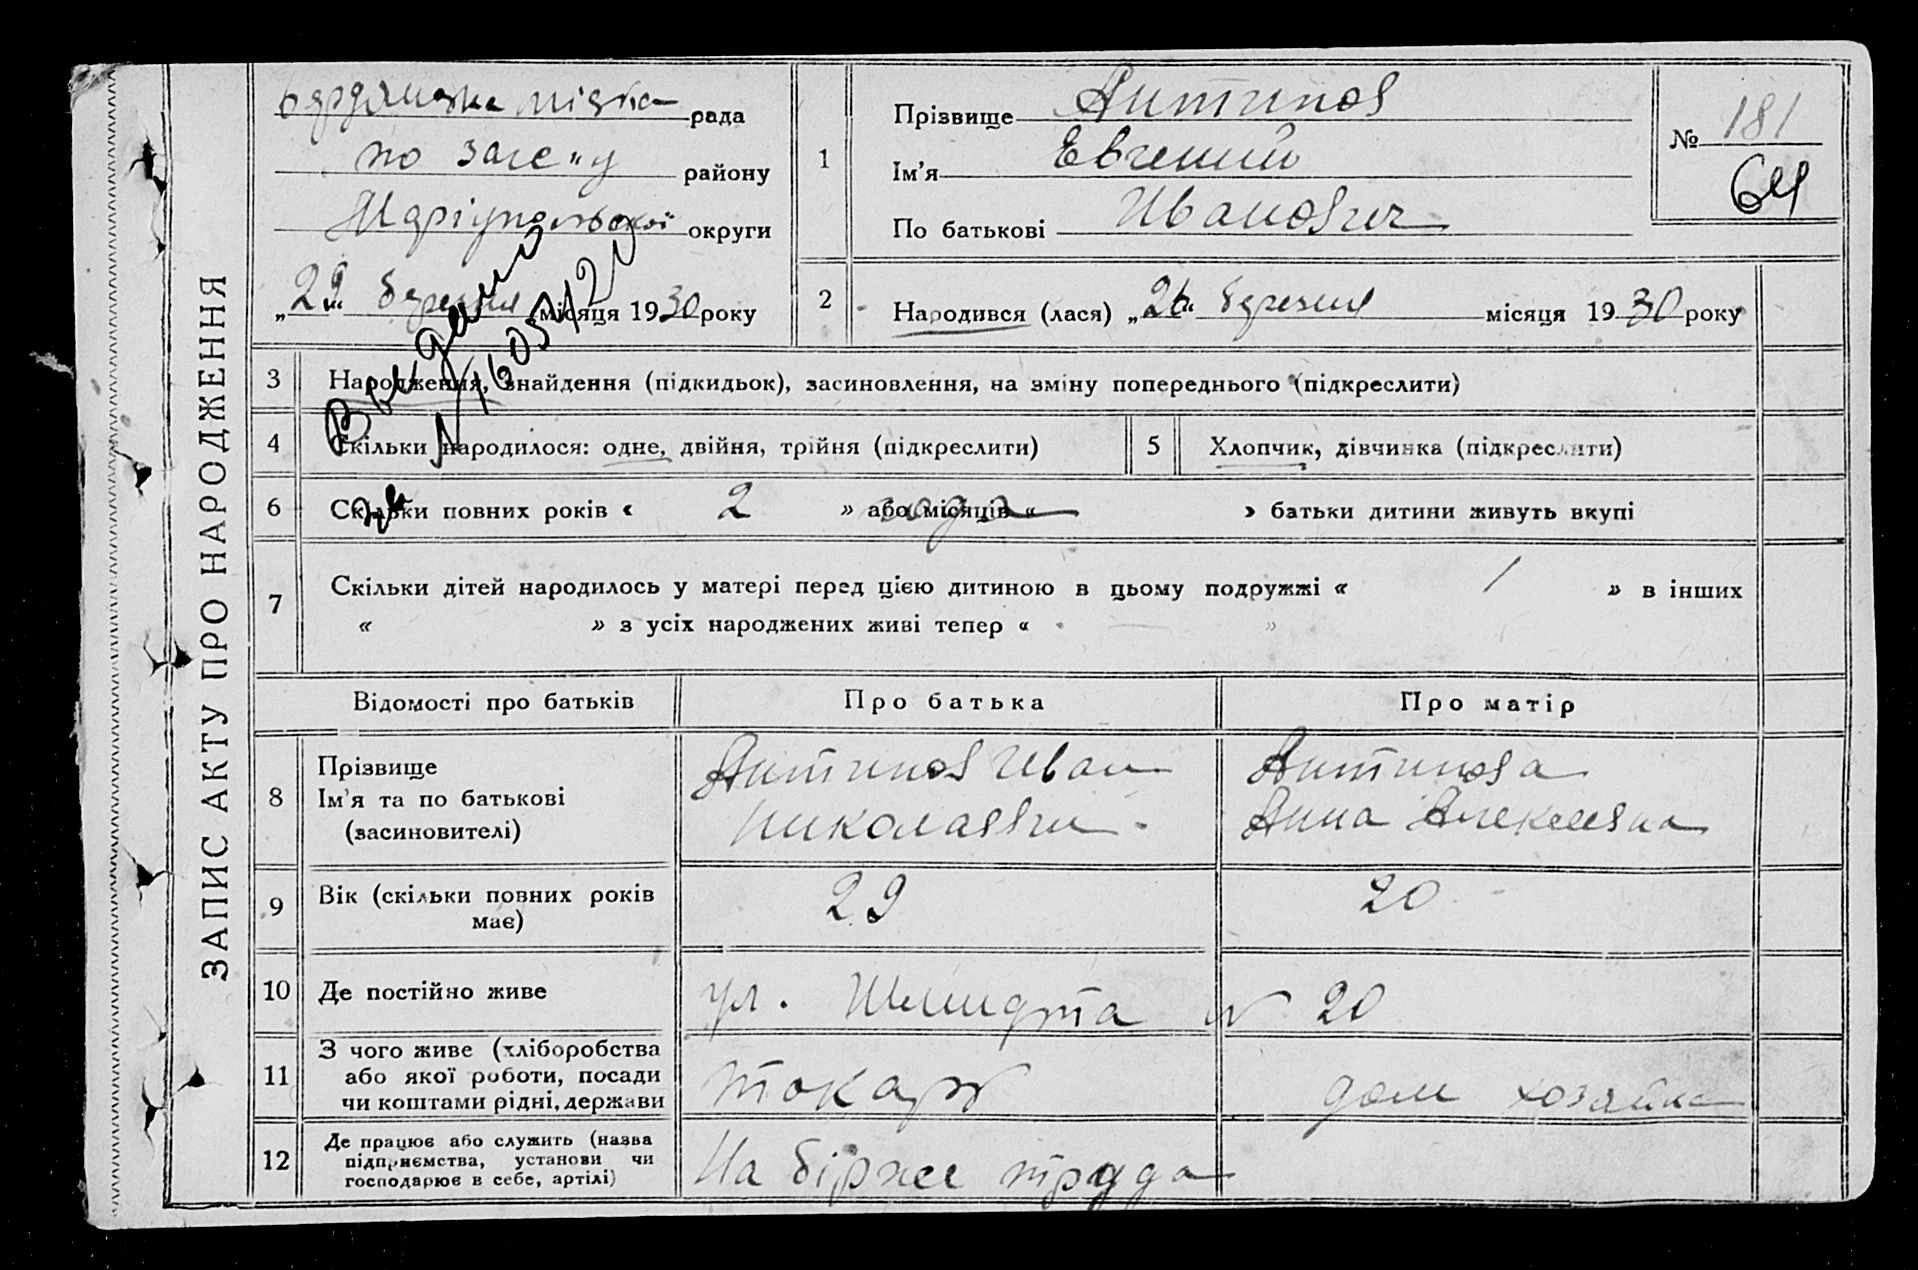 ЗАПИС АКТУ ПРО НАРОДЖЕННЯ
Бердянська міська рада
по загсу району
Маріупольської округи
„29" березня місяця 1930 року
1
Прізвище Антипов
Ім'я Евгений
По батькові Иванович
№ 181
64
2
Народився (лася) „26" березня місяця 1930 року
Выдано
3
Народження, знайдення (підкидьок), засиновлення, на зміну попереднього (підкреслити)
4
Скільки народилося: одне, двійня, трійня (підкреслити)
5
Хлопчик, дівчинка (підкреслити)
6
Скільки повних років « 2 » або місяців « года » батьки дитини живуть вкупі
7
Скільки дітей народилось у матері перед цією дитиною в цьому подружжі « 1 » в інших
« » з усіх народжених живі тепер « »
Відомості про батьків
Про батька
Про матір
8
Прізвище
Ім'я та по батькові
(засиновителі)
Антипов Иван
Николаевич
Антипова
Анна Алексеевна
9
Вік (скільки повних років
має)
29
20
10
Де постійно живе
ул. Шмидта № 20
11
З чого живе (хліборобства
або якої роботи, посади
чи коштами рідні, держави
токарь
дом хозяйка
12
Де працює або служить (назва
підприємства, установи чи
господарює в себе, артілі)
На бірже труда